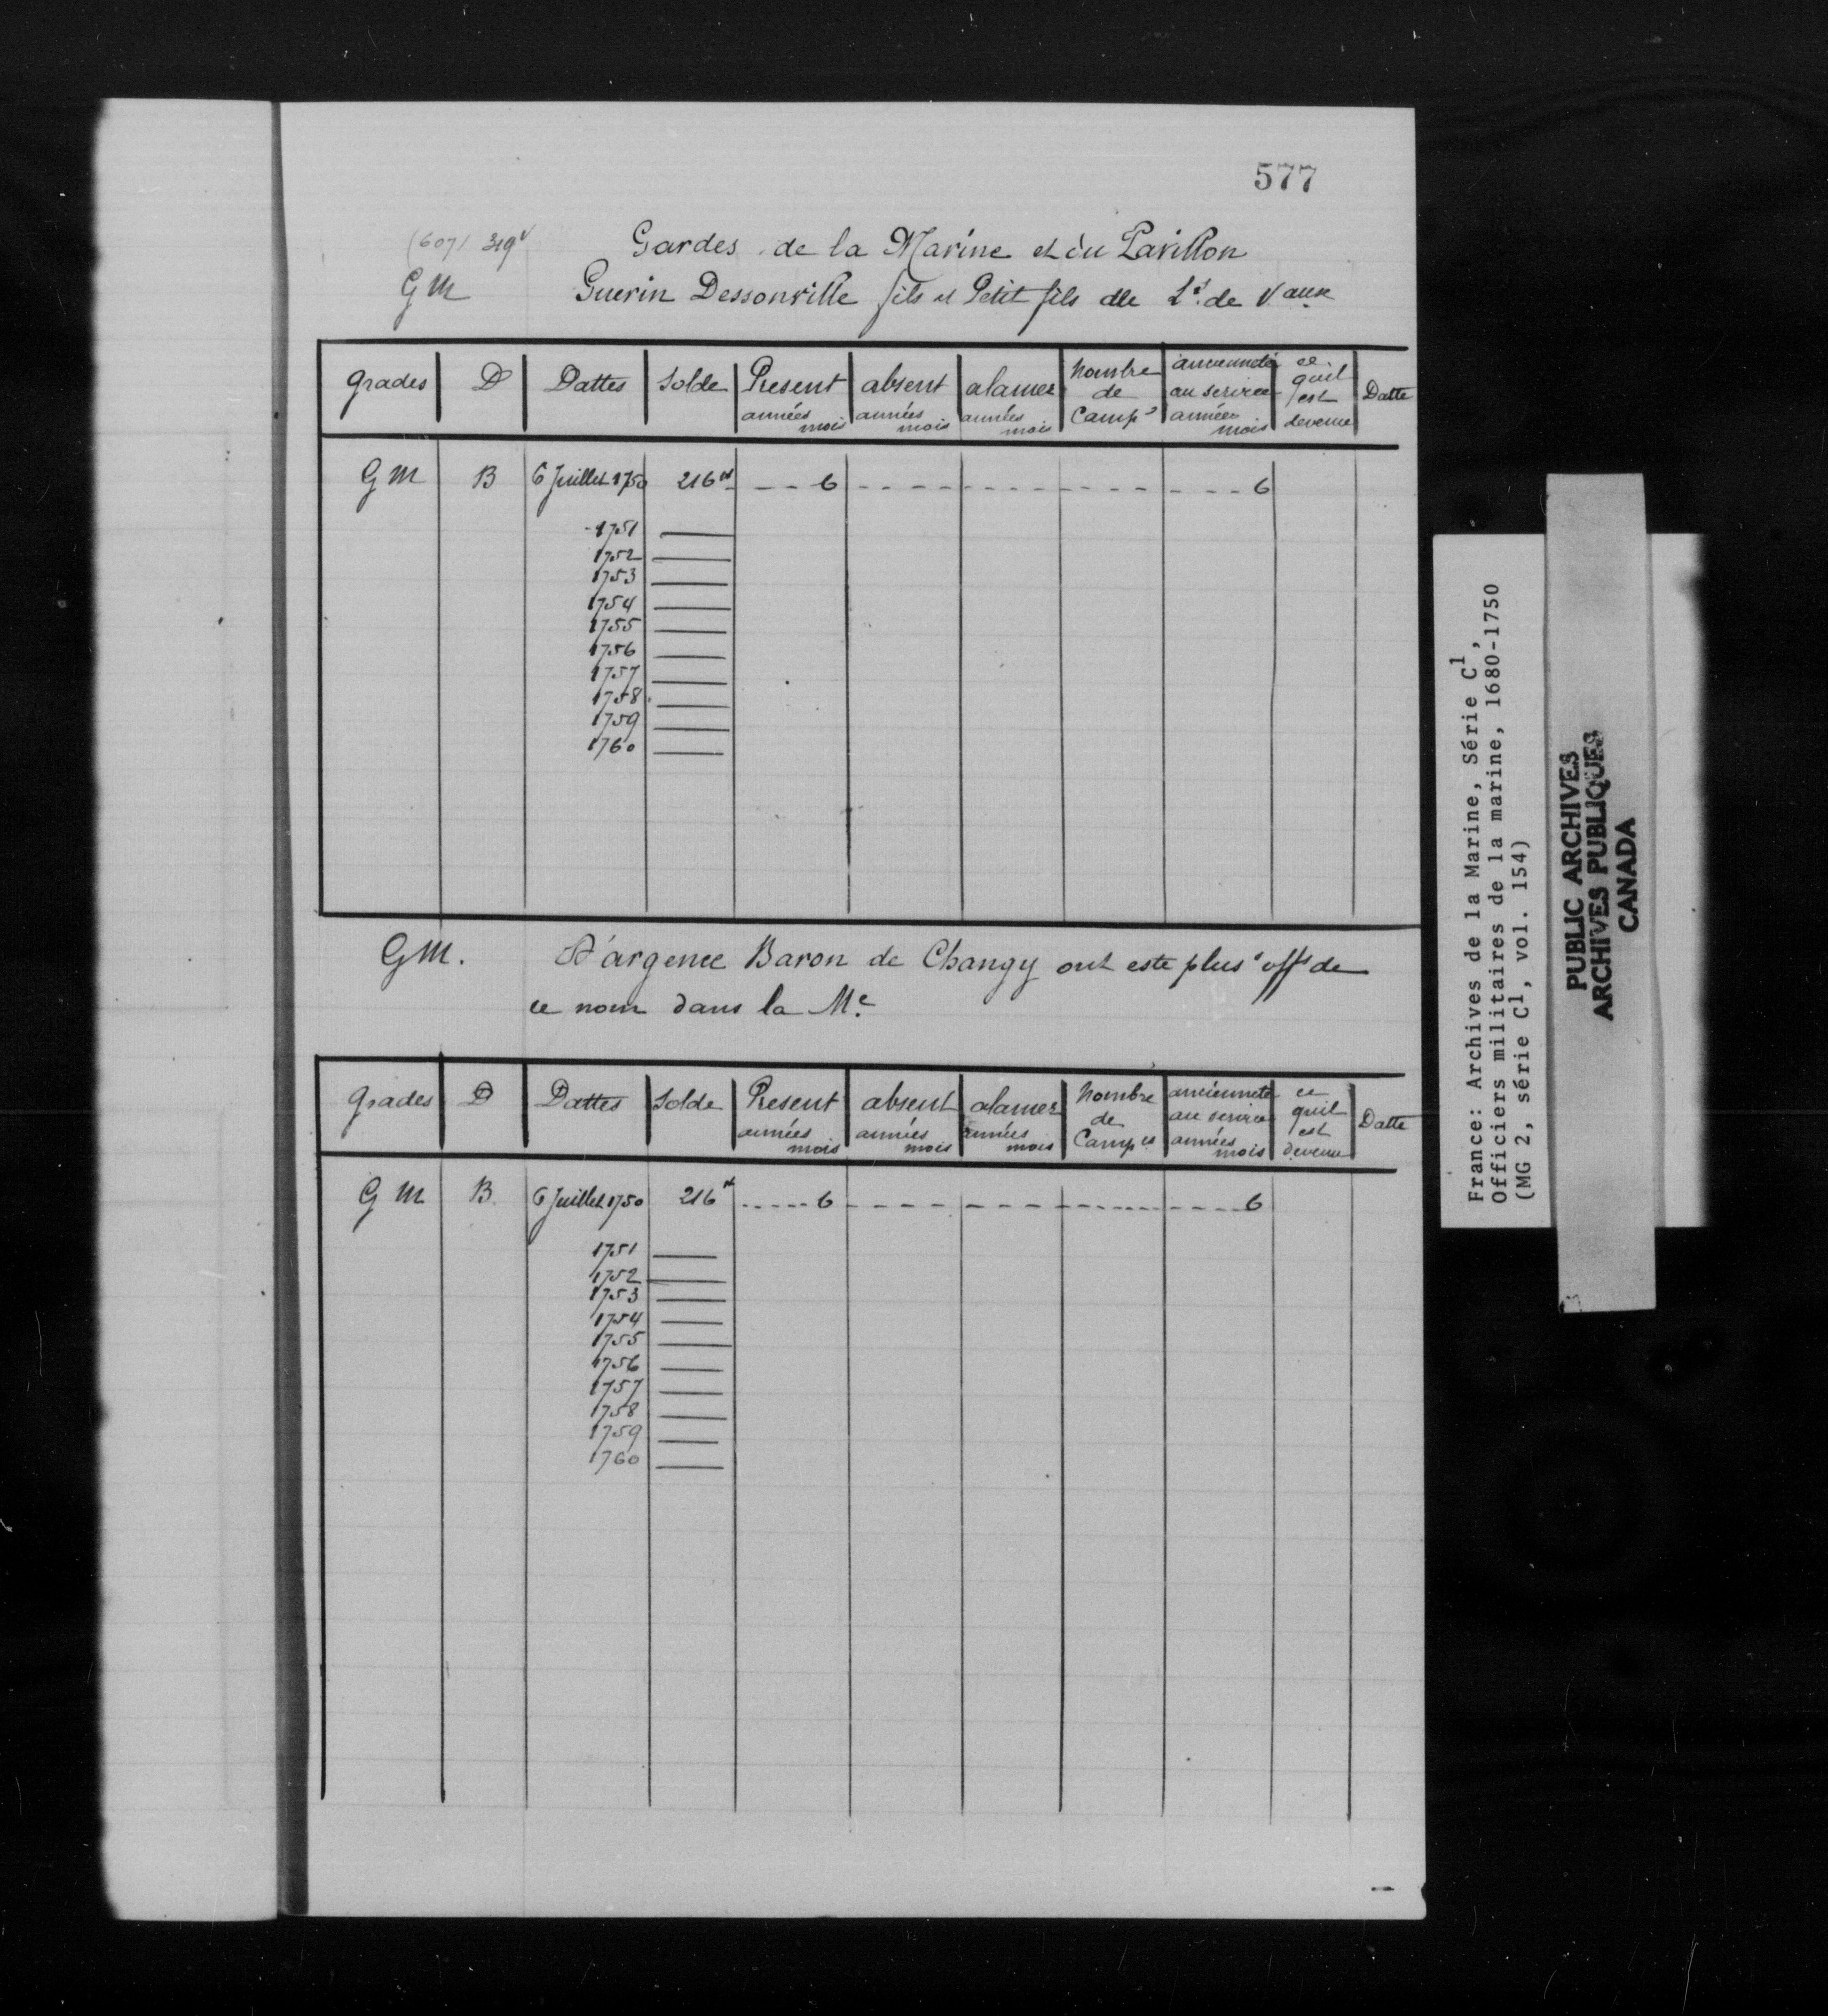 577
(607) 319v
Gardes de la Marine et du Pavillon
GM Guerin Dessonville fils et Petit fils de Lt. de Vaux
grades D Dattes Solde Present absent alamer Nombre de Camps ancienneté au service ce quil est devenu Datte
années mois années mois années mois années mois
GM B 6 Juillet 1750 216lt - - - 6 - - - - - - - - - - - - - - - 6
1751
1752
1753
1754
1755
1756
1757
1758
1759
1760
GM. D'argence Baron de Changy ont este plus's offs de
ce nom dans la Me.
grades D Dattes Solde Present absent alamer Nombre de Campes ancienneté au service ce quil est devenu Datte
années mois années mois années mois années mois
GM B. 6 Juillet 1750 216lt - - - - - 6 - - - - - - - - - - - - - - - 6
1751
1752
1753
1754
1755
1756
1757
1758
1759
1760
France: Archives de la Marine, Série C1,
Officiers militaires de la marine, 1680-1750
(MG 2, série C1, vol. 154)
PUBLIC ARCHIVES
ARCHIVES PUBLIQUES
CANADA